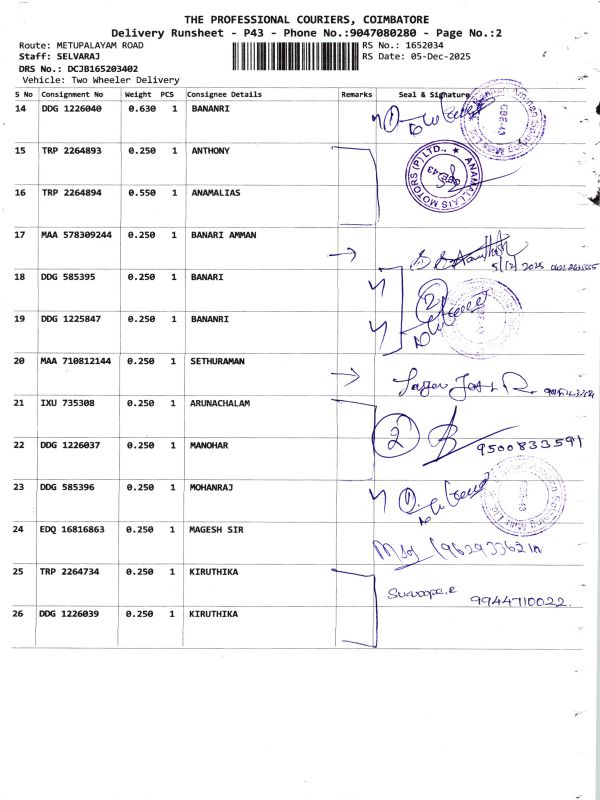 THE PROFESSIONAL COURIERS, COIMBATORE
Delivery Runsheet - P43 - Phone No.:9047080280 - Page No.:2
Route: METUPALAYAM ROAD RS No.: 1652034
Staff: SELVARAJ RS Date: 05-Dec-2025
DRS No.: DCJB165203402
Vehicle: Two Wheeler Delivery
S No Consignment No Weight PCS Consignee Details Remarks Seal & Signature
14 DDG 1226040 0.630 1 BANANRI
CBE-43
15 TRP 2264893 0.250 1 ANTHONY
ANAMALLAIS MOTORS (P) LTD.,
16 TRP 2264894 0.550 1 ANAMALIAS
17 MAA 578309244 0.250 1 BANARI AMMAN
5/12/2025
18 DDG 585395 0.250 1 BANARI
2
19 DDG 1225847 0.250 1 BANANRI
20 MAA 710812144 0.250 1 SETHURAMAN
21 IXU 735308 0.250 1 ARUNACHALAM
2
22 DDG 1226037 0.250 1 MANOHAR
9500833591
23 DDG 585396 0.250 1 MOHANRAJ
24 EDQ 16816863 0.250 1 MAGESH SIR
25 TRP 2264734 0.250 1 KIRUTHIKA
9944710022.
26 DDG 1226039 0.250 1 KIRUTHIKA